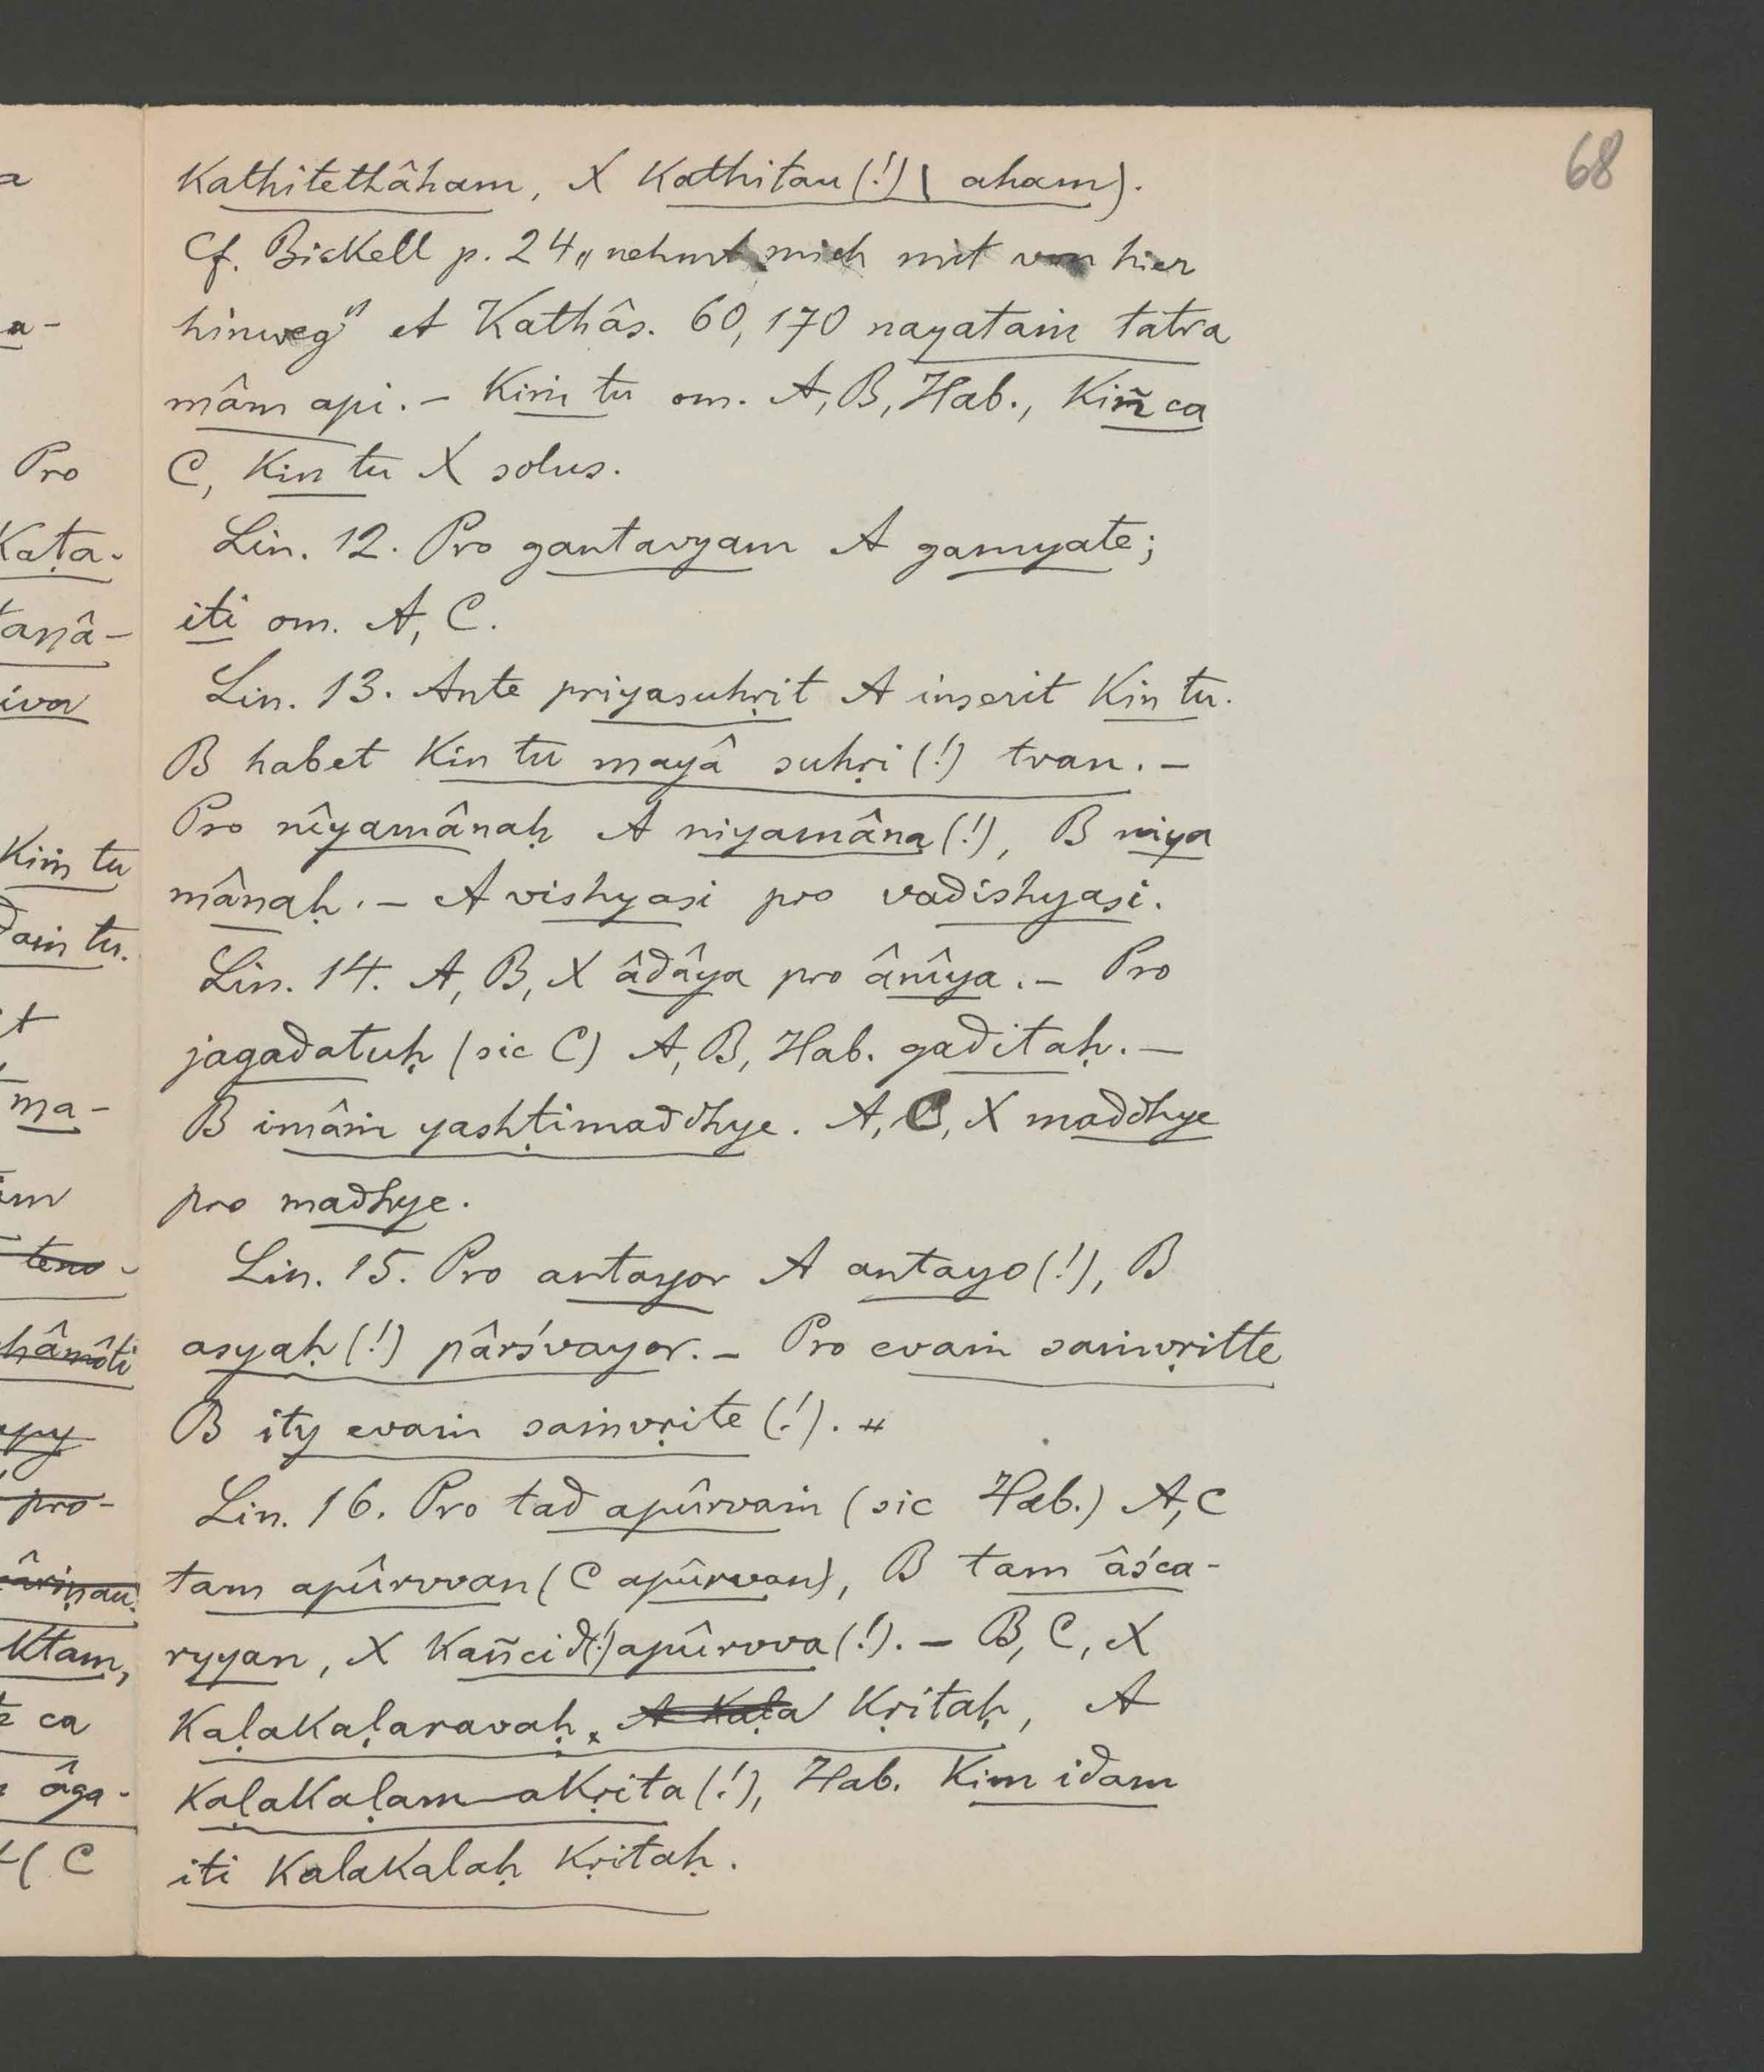 68
kathitethâham, X kathitau (!) ( aham).
Cf. Bickell p. 24 „nehmt mich mit von hier
hinweg“ et Kathâs. 60, 170 nayataṁ tatra
mâm api. – Kiṁ tu om. A, B, Hab., kiñ ca
C, kin tu X solus.
Lin. 12. Pro gantavyam A gamyate;
iti om. A, C.
Lin. 13. Ante priyasuhṛit A inserit kin tu.
B habet kin tu mayâ suhṛi (!) tvan. –
Pro nîyamânaḥ A niyamâna (!), B niya
mânaḥ. – A vishyasi pro vadishyasi.
Lin. 14. A, B, X âdâya pro ânîya. – Pro
jagadatuḥ (sic C) A, B, Hab. gaditaḥ. –
B imâṁ yashṭimaddhye. A, C, X maddhye
pro madhye.
Lin. 15. Pro antayor A antayo (!), B
asyaḥ (!) pârśvayor. – Pro evaṁ saṁvṛitte
B ity evaṁ saṁvṛite (!). #
Lin. 16. Pro tad apûrvaṁ (sic Hab.) A, C
tam apûrvvan (C apûrwan), B tam âśca-
ryyan, X kañcid (!) apûrvva (!). – B, C, X
kaḷakaḷaravaḥ A kaḷa kṛitaḥ, A
kaḷakaḷam akṛita (!), Hab. kim idam
iti kalakalaḥ kṛitaḥ.
a
a-
Pro
kaṭa-
taṇâ-
iva
kiṁ tu
daṁ tu.
it
ma-
im
teno-
hâmôti
apy
pro-
âriṇau
ktam,
ca
âga-
( C